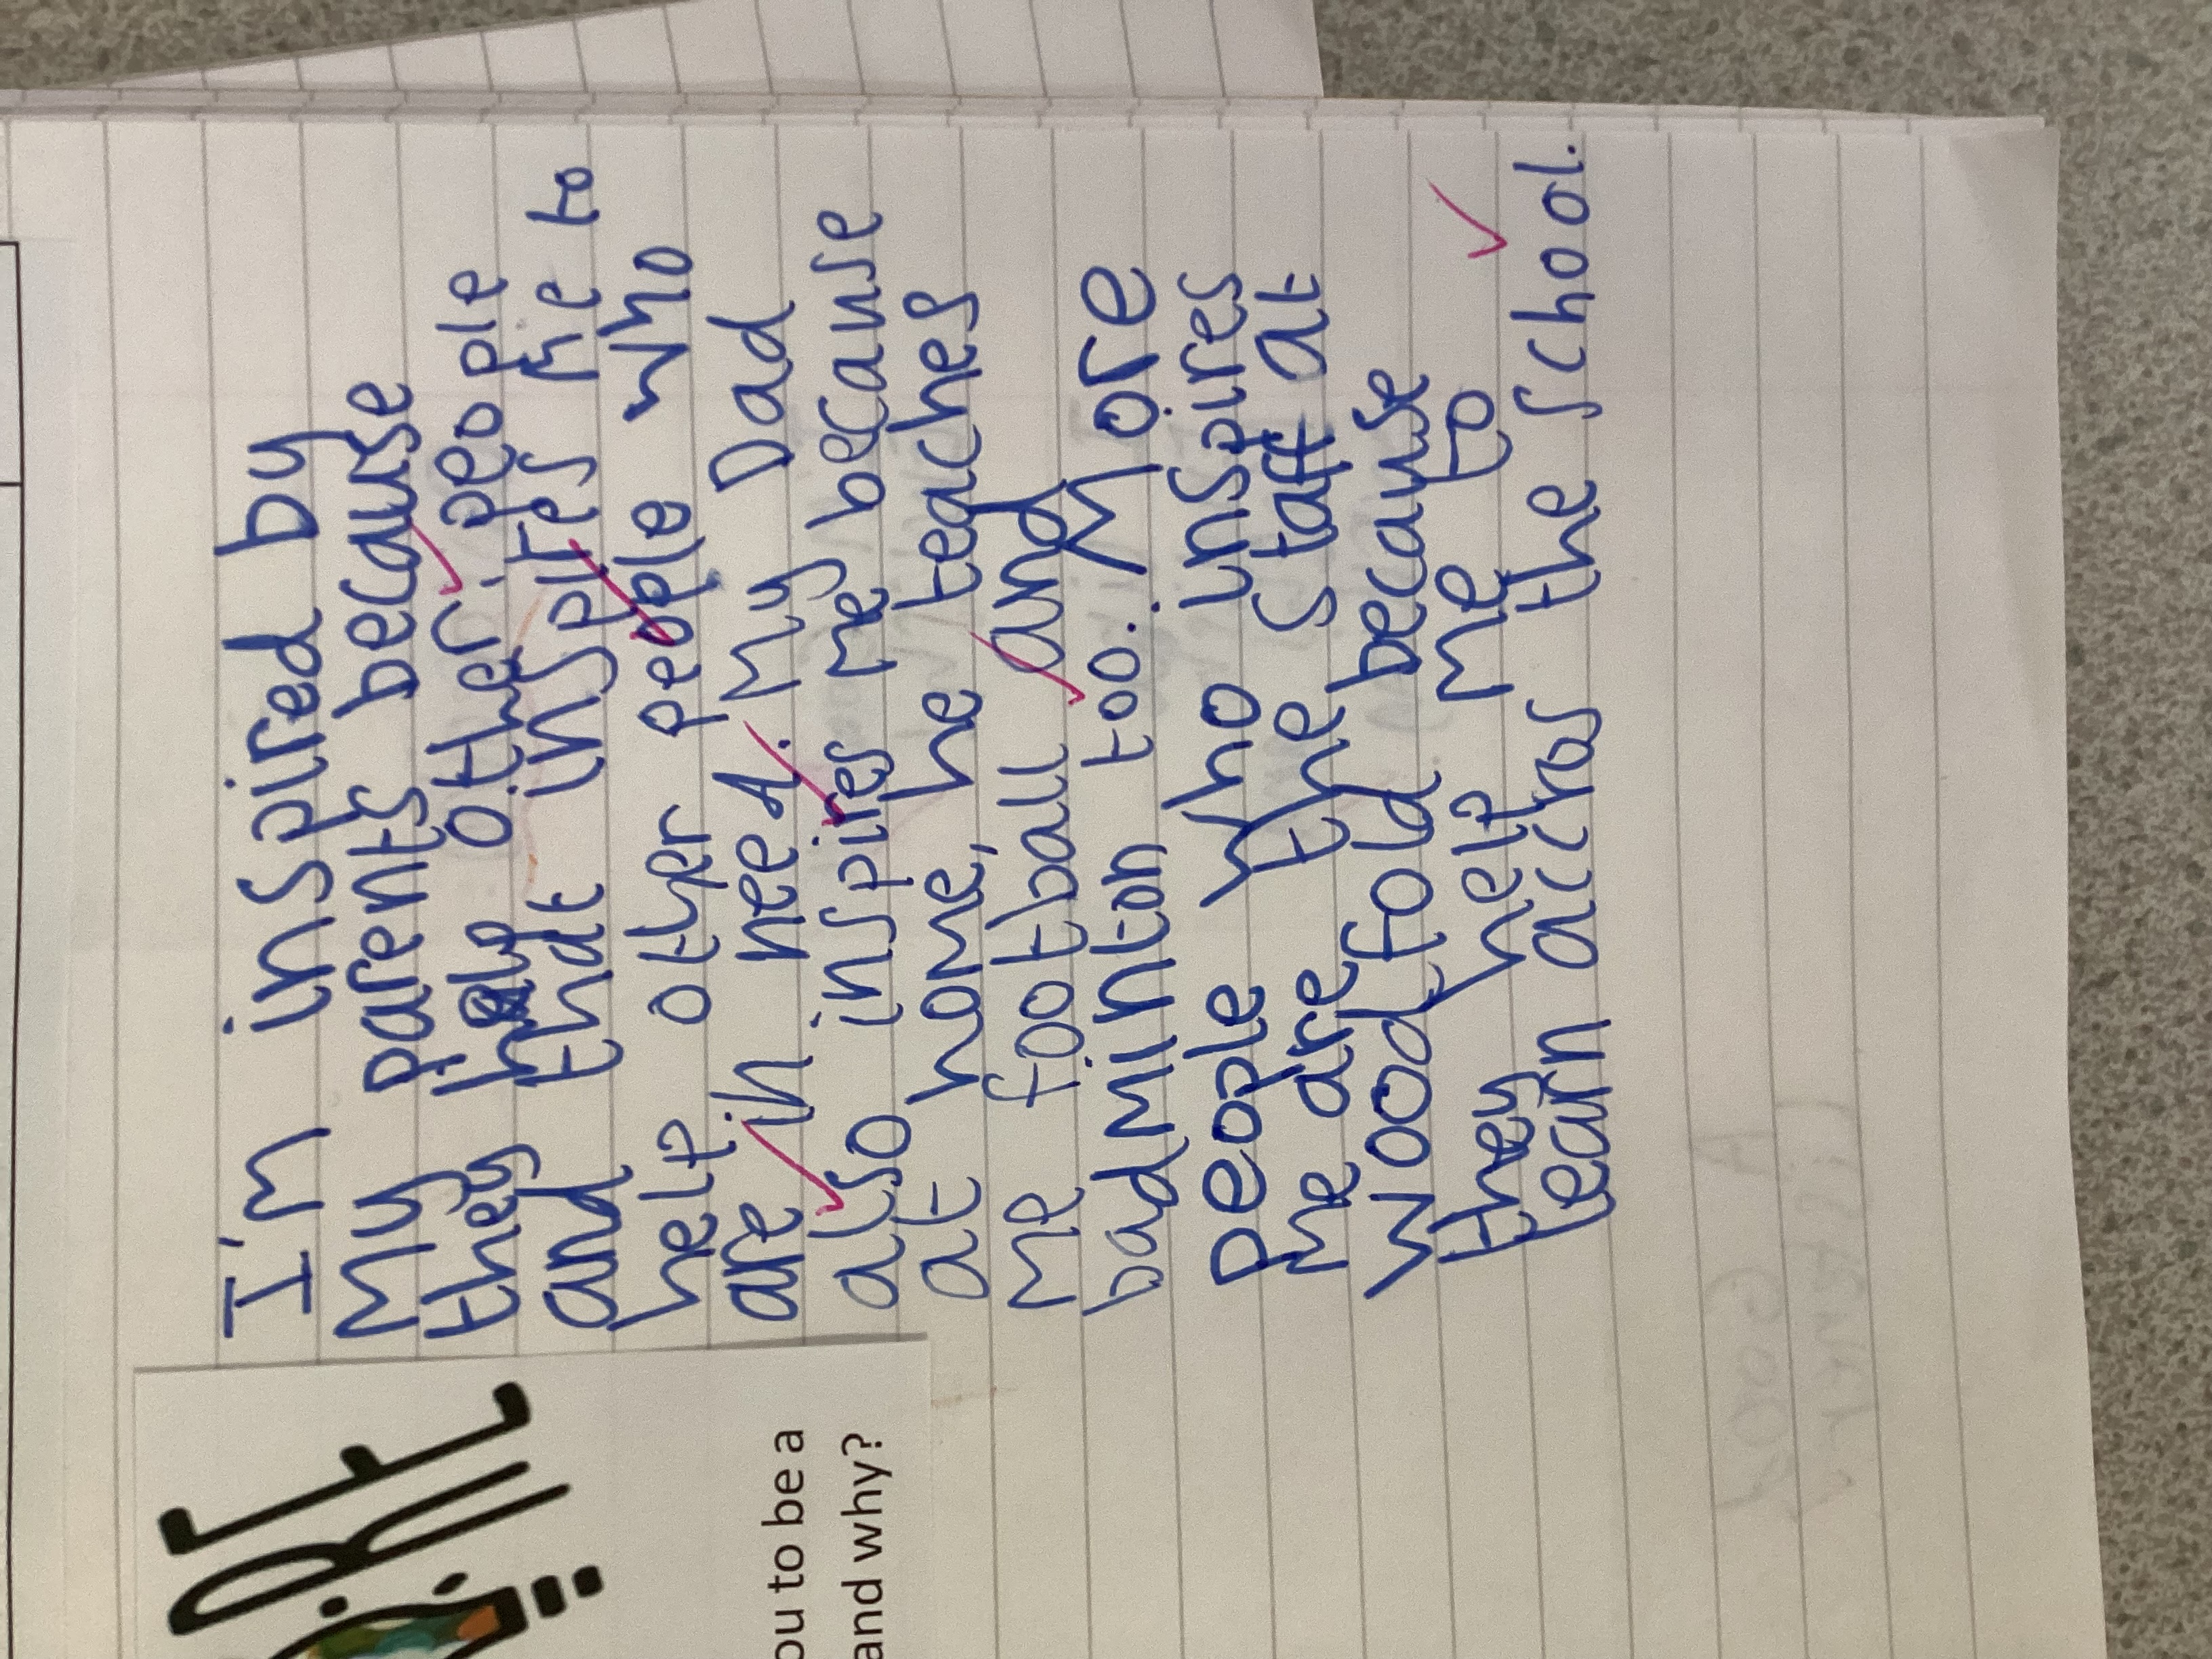 ou to be a
and why?
I'm inspired by
My parents because
they help other people
and that inspires me to
help other people who
are in need. My Dad
also inspires me because
at home, he teaches
me football and
badminten too. More
people who inspires
me are the staff at
Woodfold because
they help me to
learn across the school.